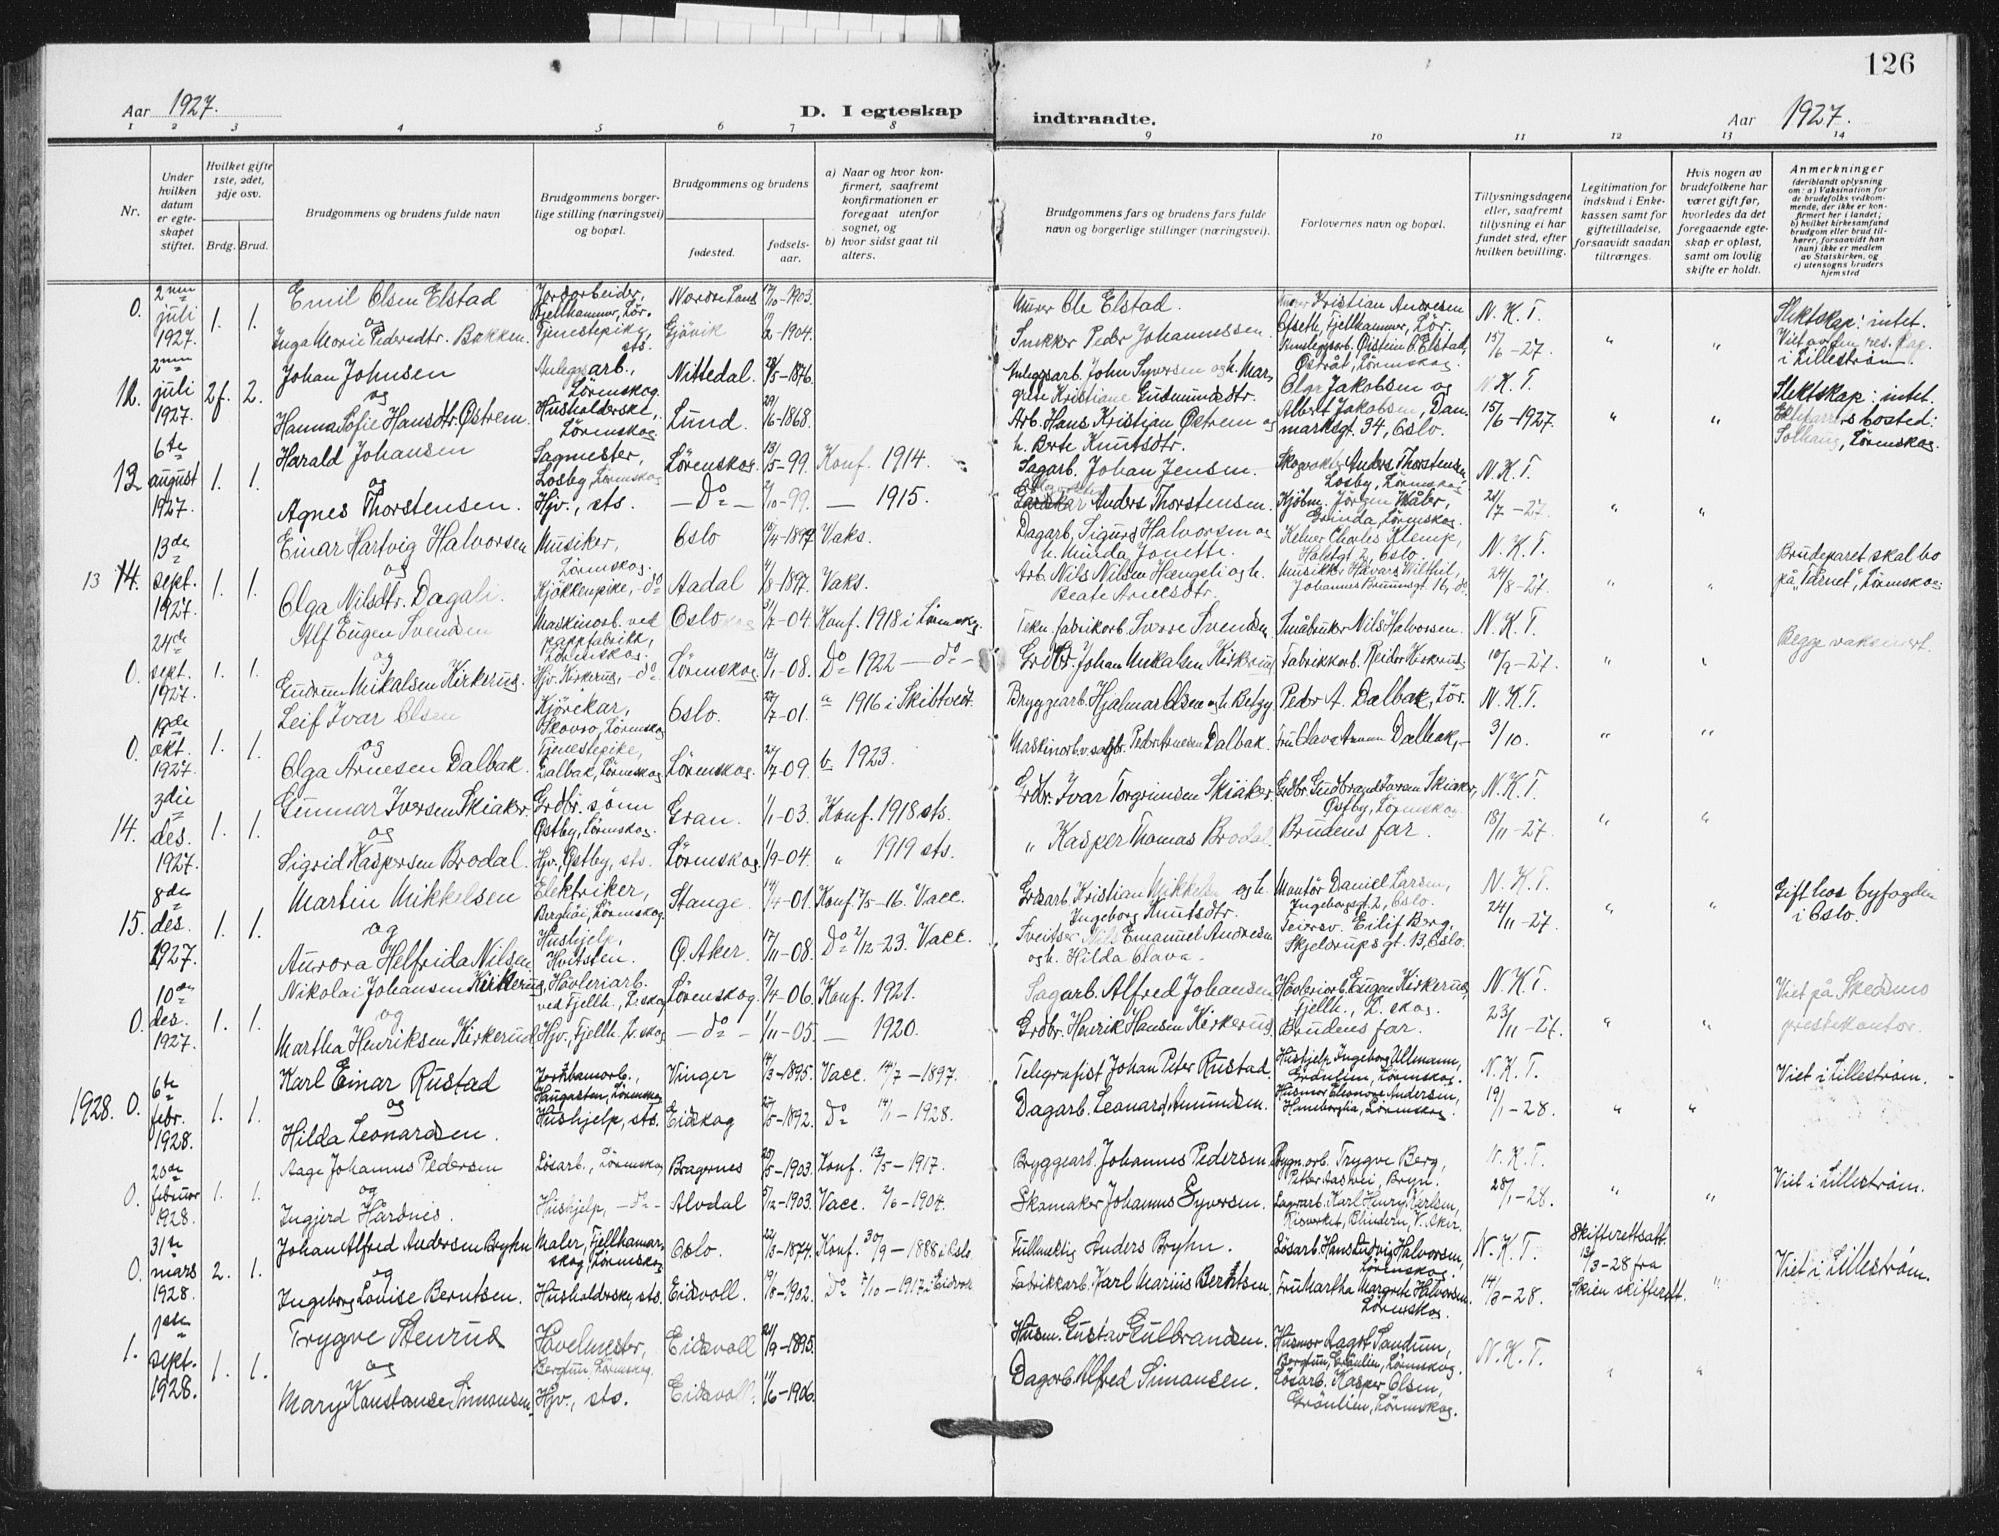 126
Aar 1927.
D. I egteskap
indtraadte.
Aar 1927.
1 2 3 4 5 6 7 8 9 10 11 12 13 14
Nr.
Under hvilken datum er egteskapet stiftet.
Hvilket gifte 1ste, 2det, 3dje osv.
Brdg. Brud.
Brudgommens og brudens fulde navn
Brudgommens borgerlige stilling (næringsvei) og bopæl.
Brudgommens og brudens
fødested.
fødselsaar.
a) Naar og hvor konfirmert, saafremt konfirmationen er foregaat utenfor sognet, og
b) hvor sidst gaat til alters.
Brudgommens fars og brudens fars fulde navn og borgerlige stillinger (næringsvei).
Forlovernes navn og bopæl.
Tillysningsdagene eller, saafremt tillysning ei har fundet sted, efter hvilken bevilling.
Legitimation for indskud i Enkekassen samt for giftetilladelse, forsaavidt saadan tiltrænges.
Hvis nogen av brudefolkene har været gift før, hvorledes da det foregaaende egteskap er opløst, samt om lovlig skifte er holdt.
Anmerkninger
(deriblandt oplysning om: a) Vaksination for brudefolks vedkommende, der ikke er konfirmert her i landet; b) hvilket kirkesamfund brudgom eller brud tilhører, forsaavidt han (hun) ikke er medlem av Statskirken, og c) utensogns bruders hjemsted
0. 2nen juli 1927. 1. 1. Emil Olsen Elstad Jordarbeider, Fjellhammer, Lör. Nordre Land 17/10-1903. Murer Ole Elstad. Kristian Andresen Ofseth, Fjellhammer, Lör. N.K.T. Slektskap: intet.
og
Inga Marie Pedersdtr. Bakken. Tjenestepike, sts. Gjövik 2-1904. Snekker Peder Johannessen. Öistein O. Elstad, Östråt, Lörenskog. 15/6-27. " " i Lillestrøm.
12. 2nen juli 1927. 2f. 2. Johan Johnsen Anleggsarb., Lörenskog. Nittedal. 28/5-1876. Anleggsarb. John Syversen og h. Margrete Kristiane Gudmundsdtr. Olga Jakobsen og N.K.T. Slektskap: intet.
og
Hanna Sofie Hansdtr. Østrem. Husholderske, Lörenskog. Lund. 29/6-1868. Arb. Hans Kristian Östrem og h. Berte Knutsdtr. Albert Jakobsen, Danmarksgt. 34, Oslo. 15/6-1927. " " Ekteparrets bosted: Solhaug, Lörenskog.
12 6te august 1927. 1. 1. Harald Johansen Sagmester, Losby, Lörenskog Lörenskog. 13/5-99. Konf. 1914. Sagarb. Johan Jensen. Anders Thorstensen, Losby, Lörenskog N.K.T.
og
Agnes Thorstensen. Hjv., sts. — Do — 2/10-99. — 1915. Anders Thorstensen. Kjöbm. Jörgen Kåbr, Grinda, Lörenskog. 21/7-27. " "
13 14. 13de sept. 1927. 1. 1. Einar Hartvig Halvorsen Musiker, Lörenskog. Oslo 15/4-1897 Vaks. Dagarb. Sigurd Halvorsen og h. Minda Jonette. Kelner Charles Klemp, N.K.T. Brudeparet skal bo
og
Olga Nilsdtr. Dagali. Kjökkenpike, -do- Aadal 4/8-1897. Vaks. Arb. Nils Nilsen Hængsli og h. Beate Arnesdtr. Musikker Håvard Wilthil, Johannes Bruunsgt. 16, do. 24/8-27. " " på "Tårnet", Lörenskog.
0. 24de sept. 1927. 1. 1. Alf Eugen Svendsen Maskinarb. ved pappfabrikk, Lörenskog. Oslo 31/7-04. Konf. 1918 i Lörenskog. Tekn. fabrikarb. Sverre Svendsen Småbruker Nils Halvorsen. N.K.T. Begge vaksinert.
og
Gudrun Mikalsen Kirkerud. Hjv. Kirkerud, -do- Lörenskog. 13/1-08. Do 1922 — do — Grdbr. Johan Mikalsen Kirkerud Fabrikkarb. Reidar Kirkerud. 10/9-27. " "
0. 19de okt. 1927. 1. 1. Leif Ivar Olsen Kjörekar, Skovro, Lörenskog Oslo. 27/7-01. a 1916 i Skibtvedt. Bryggearb. Hjalmar Olsen og h. Betzy Peder A. Dalbak, Lör. N.K.T.
og
Olga Arnesen Dalbak. Tjenestepike, Dalbak, Lörenskog Lörenskog. 24/7-09. b 1923. Maskinarb. v. sagbr. Peder Arnesen Dalbak. Fru Olava Dalbak, — 3/10. " "
14. 3die des. 1927. 1. 1. Gunnar Iversen Skiaker Grdbr. sønn Östby, Lörenskog. Gran. 1/1-03. Konf. 1918 sts. Grdbr. Ivar Torgrimsen Skiaker. Grdbr. Gudbrand Iversen Skiaker, Östby, Lörenskog N.K.T.
og
Sigrid Kaspersen Brodal. Hjv. Östby, sts. Lörenskog. 1/9-04. " 1919 sts. " Kasper Thomas Brodal. Brudens far. 18/11-27. " "
15. 8de des. 1927. 1. 1. Martin Mikkelsen Elektriker, Berghöi, Lörenskog. Stange 14/4-01. Konf. 7/5-16. Vacc. Grdsarb. Kristian Mikkelsen og h. Ingeborg Knutsdtr. Montör Daniel Larsen, Ingeborgsgt. 2, Oslo. N.K.T. Gift hos byfogden i Oslo.
og
Aurora Helfrida Nilsen Hushjelp, Hvitsten. Ö. Aker. 17/11-08. Do 2/12-23. Vacc. Sveitser Nils Emanuel Andresen og h. Hilda Olava. Feiersv. Eilif Berg, Skjeldrupsgt. 13, Oslo. 24/11-27. " "
0. 10de des. 1927. 1. 1. Nikolai Johansen Kirkerud, Hövleriarb. ved Fjellh., L.skog Lörenskog. 9/4-06. Konf. 1921. Sagarb. Alfred Johansen Hövleriarb. Eugen Kirkerud, Fjellh., L.skog. N.K.T. Viet på Skedsmo prestekontor.
og
Martha Henriksen Kirkerud. Hjv., Fjellh., L.skog — do — 1/11-05. — 1920. Grdbr. Henrik Hansen Kirkerud. Brudens far. 23/11-27. " "
1928. 0. 6te febr. 1928. 1. 1. Karl Einar Rustad Haugasten, Lörenskog Vinger 14/3-1895. Vacc. 14/7-1897. Telegrafist Johan Peter Rustad. Hushjelp Ingeborg Ullmann, Grönlien, Lörenskog. N.K.T. Viet i Lillestrøm.
og
Hilda Leonardsen. Hushjelp, sts. Eidskog 25/5-1892. Do 14/1-1928. Dagarb. Leonard Amundsen. Husmor Eleonore Andersen, Haneborglia, Lörenskog. 19/1-28. " "
0. 20de februar 1928. 1. 1. Aage Johannes Pedersen Lösarb., Lörenskog Bragernes 25/5-1903. Konf. 13/5-1917. Bryggearb. Johannes Pedersen Bygn.arb. Trygve Berg, Bryn. N.K.T. Viet i Lillestrøm.
og
Ingjerd Hårdnes. Hushjelp, — do — Alvdal 5/12-1903. Vacc. 2/6-1904. Skomaker Johannes Syversen. Lagerarb. Karl Henry Karlsen, Blindern, V. Aker. 28/1-28. " "
0. 31te mars 1928. 2. 1. Johan Alfred Andersen Bryhn Maler, Fjellhamarskog, Lörenskog Oslo. 22/3-1874. Konf. 30/9-1888 i Oslo Fullmektig Anders Bryhn. Lösarb. Hans Ludvig Halvorsen, Lörenskog. N.K.T. Skifterettsatt. 13/3-28 fra Viet i Lillestrøm.
og
Ingeborg Louise Berntsen. Husholderske, sts. Eidsvoll. 19/8-1902. Do 7/10-1917 i Eidsvoll Fabrikkarb. Karl Marius Berntsen. Fru Martha Margrete Halvorsen, Lörenskog. 14/3-28. Skien skifterett. "
1. 1ste sept. 1928. 1. 1. Trygve Stenrud Hövelmester, Bergtun, Lörenskog. Eidsvoll 21/9-1895. Husm. Gustav Gulbrandsen. Husmor Dagot Sandum, Bergtun, Grönlien, Lörenskog. N.K.T.
og
Mary Konstanse Simonsen. Hjv., sts. Eidsvoll. 11/6-1906. Dagarb. Alfred Simonsen. Lösarb. Kasper Olsen, Grönlien, Lörenskog. " "